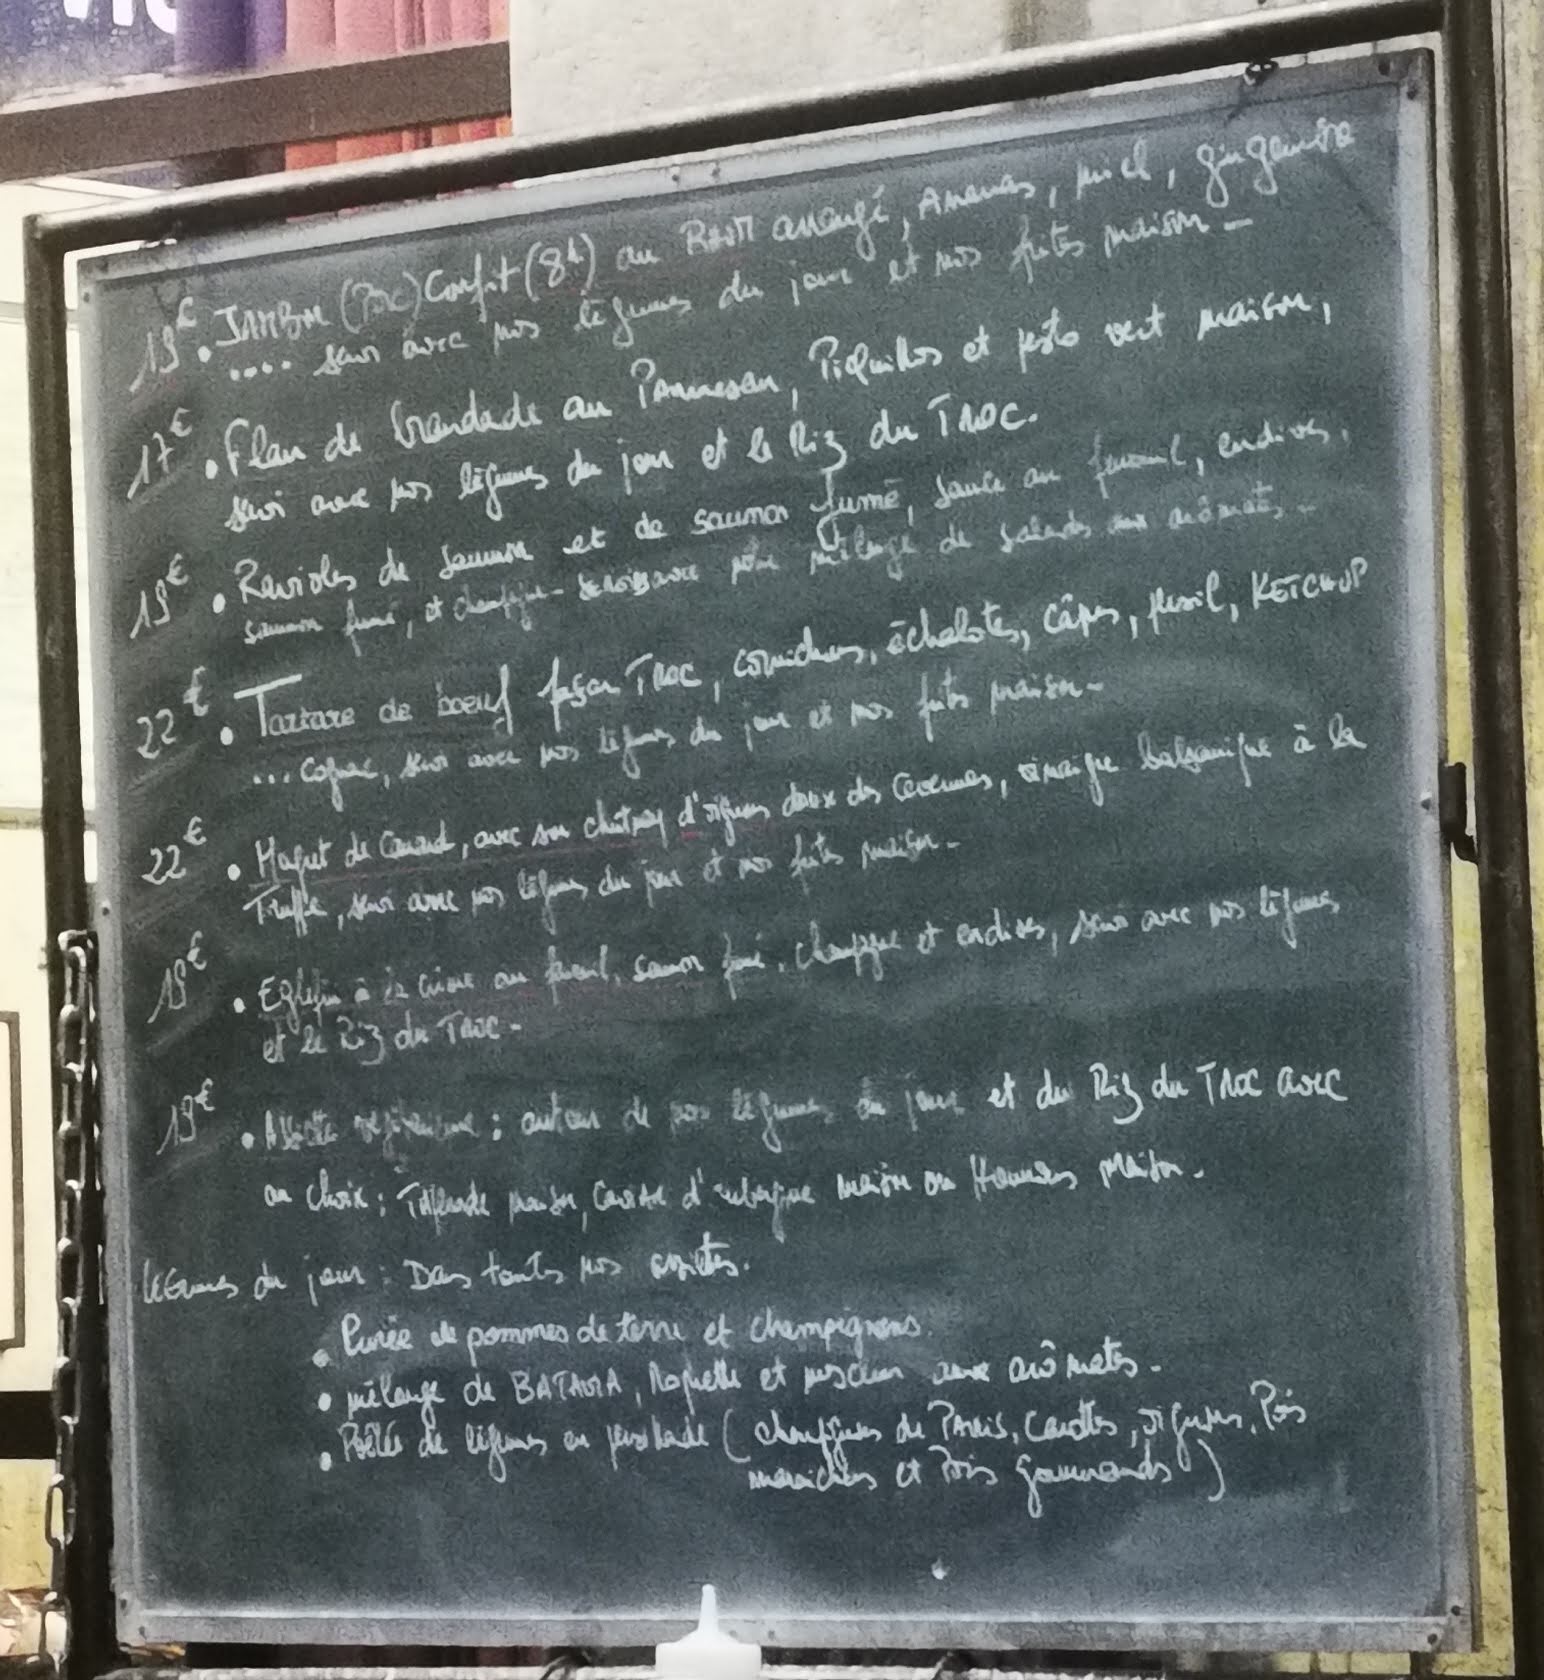 19€ • JAMBON (Porc) Confit (8h) au RHUM arrangé, Ananas, miel, gingembre
.... servi avec nos légumes du jour et nos frites maison -
17€ • Flan de brandade au Parmesan, Piquillos et pesto vert maison,
servi avec nos légumes du jour et le Riz du TROC.
19€ • Ravioles de saumon et de saumon fumé, sauce au fenouil, endives,
saumon fumé, et champignons mélange de salades aux arômates -
22€ • Tartare de boeuf façon TROC, cornichons, échalotes, câpres, persil, KETCHUP
... cognac, servi avec nos légumes du jour et nos frites maison -
22€ • Magret de Canard, avec son chutney d'oignons doux des Cévennes, vinaigre balsamique à la
Truffe, servi avec nos légumes du jour et nos frites maison -
19€ • Eglefin à la crème au fenouil, saumon fumé, champignons et endives, servi avec nos légumes
et le Riz du TROC -
19€ • Assiette végétarienne : autour de nos légumes du jour et du Riz du TROC avec
au choix : Tapenade maison, Caviar d'aubergine maison ou Houmous maison -
Légumes du jour : Dans toutes nos assiettes.
• Purée de pommes de terre et champignons.
• mélange de BATAVIA, Roquette et mesclun aux arômates -
• Poêlée de légumes en persillade ( champignons de PARIS, Carottes, oignons, Pois
maraichers et Pois gourmands )